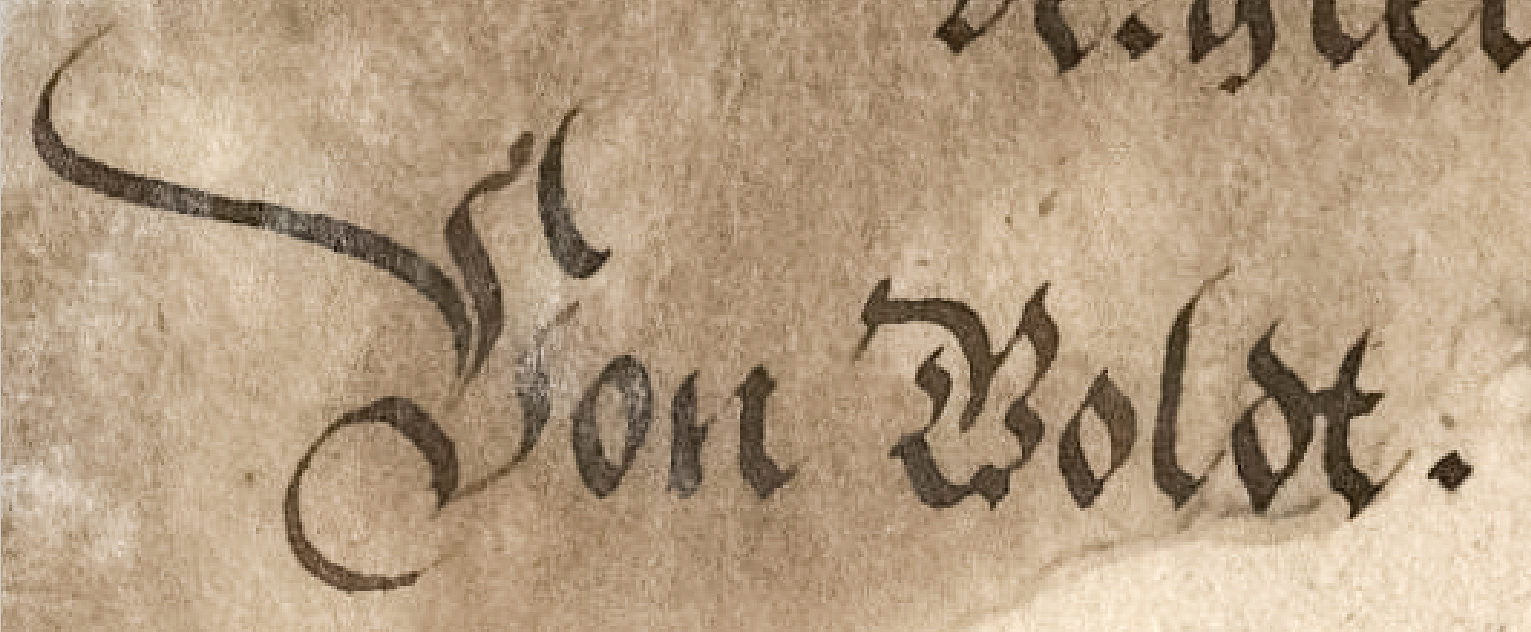 Von Boldt.